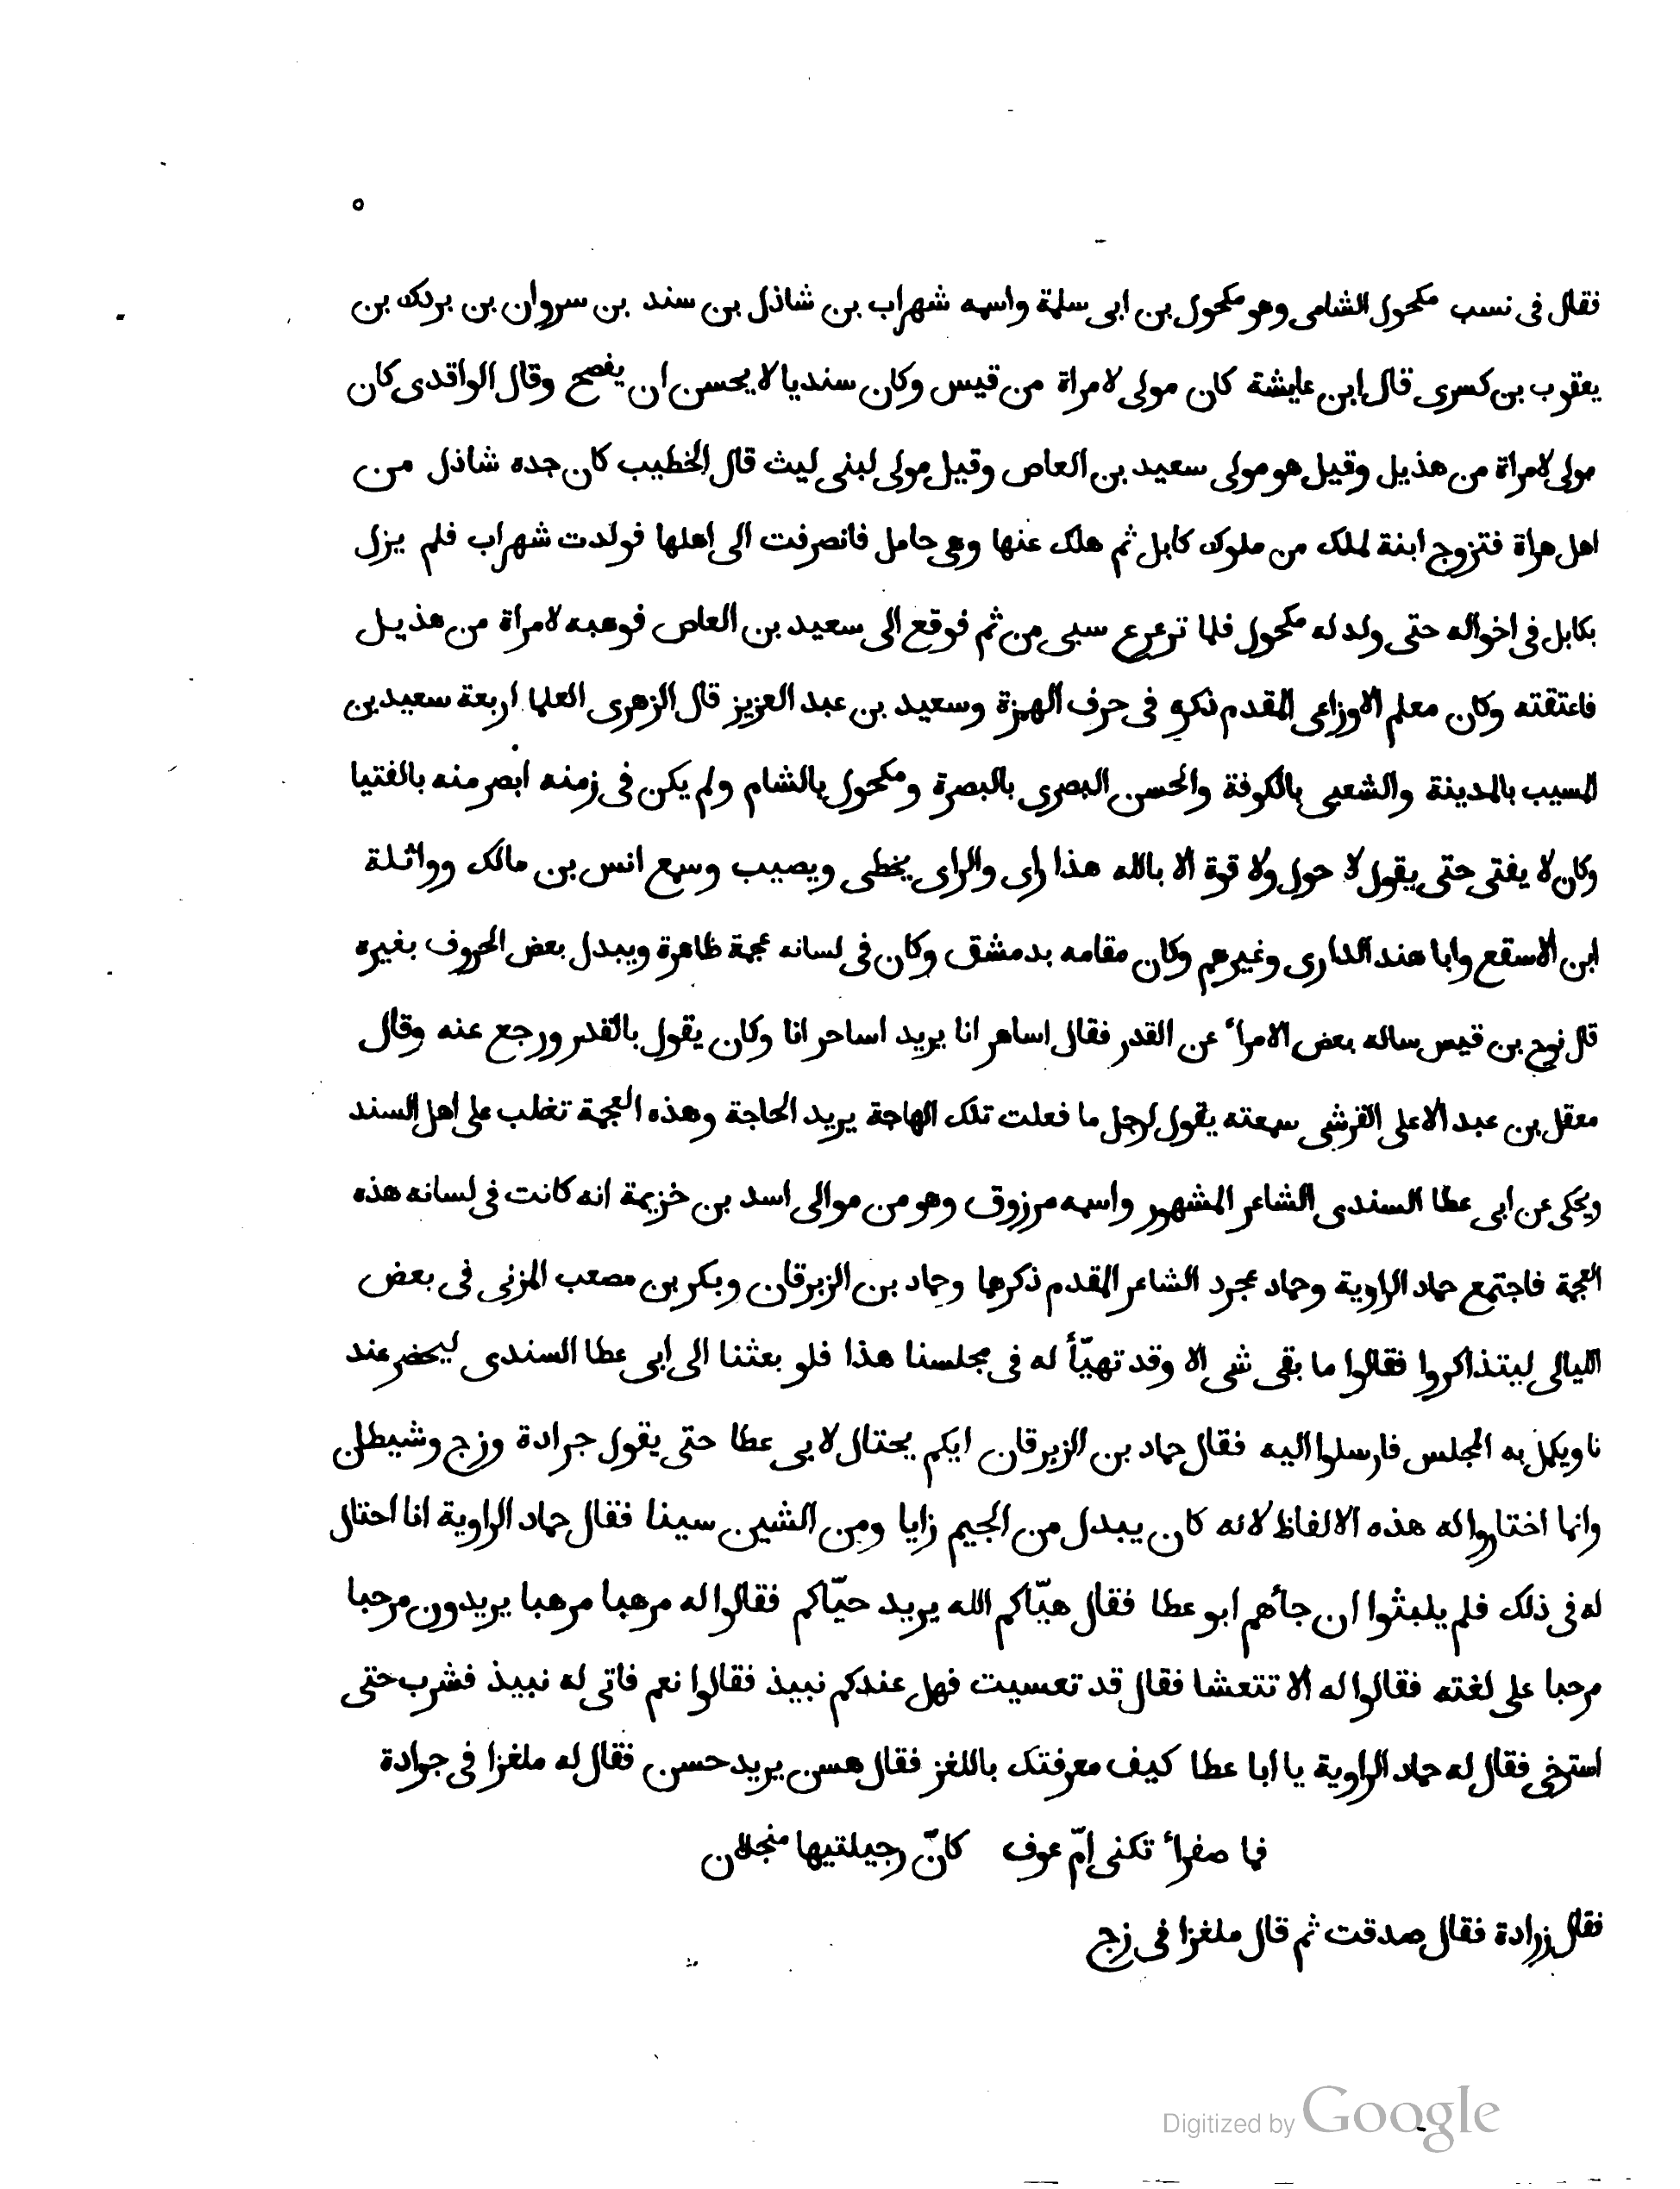 ٥
فقال فى نسب مكحول الشامى وهو مكحول بن ابى سلمة واسمه شهراب بن شاذل بن سند بن سروان بن بردك بن
يعقوب بن كسرى قال ابن عايشة كان مولى لامراة من قيس وكان سنديا لا يحسن ان يفصح وقال الواقدى كان
مولى لامراة من هذيل وقيل هو مولى سعيد بن العاص وقيل مولى لبنى ليث قال الخطيب كان جده شاذل من
اهل هراة فتزوج ابنة لملك من ملوك كابل ثم هلك عنها وهى حامل فانصرفت الى اهلها فولدت شهراب فلم يزل
بكابل فى اخواله حتى ولد له مكحول فلما ترعرع سبى من ثم فوقع الى سعيد بن العاص فوهبه لامراة من هذيل
فاعتقته وكان معلم الاوزاعى المقدم ذكره فى حرف الهمزة وسعيد بن عبد العزيز قال الزهرى العلما اربعة سعيد بن
المسيب بالمدينة والشعبى بالكوفة والحسن البصرى بالبصرة ومكحول بالشام ولم يكن فى زمنه ابصر منه بالفتيا
وكان لا يفتى حتى يقول لا حول ولا قوة الا بالله هذا راى والراى يخطى ويصيب وسمع انس بن مالك وواثلة
ابن الاسقع وابا هند الدارى وغيرهم وكان مقامه بدمشق وكان فى لسانه عجمة ظاهرة ويبدل بعض الحروف بغيره
قال نوح بن قيس ساله بعض الامراء عن القدر فقال اساهر انا يريد اساحر انا وكان يقول بالقدر ورجع عنه وقال
معقل بن عبد الاعلى القرشى سمعته يقول لرجل ما فعلت تلك الهاجة يريد الحاجة وهذه العجمة تغلب على اهل السند
ويحكى عن ابى عطا السندى الشاعر المشهور واسمه مرزوق وهو من موالى اسد بن خزيمة انه كانت فى لسانه هذه
العجمة فاجتمع حماد الراوية وحماد عجرد الشاعر المقدم ذكرهما وحماد بن الزبرقان وبكر بن مصعب المزنى فى بعض
الليالى ليتذاكروا فقالوا ما بقى شى الا وقد تهيّأ له فى مجلسنا هذا فلو بعثنا الى ابى عطا السندى ليحضر عند
نا ويكمل به المجلس فارسلوا اليه فقال حماد بن الزبرقان ايكم يحتال لابى عطا حتى يقول جرادة وزج وشيطان
وانما اختاروا له هذه الالفاظ لانه كان يبدل من الجيم زايا ومن الشين سينا فقال حماد الراوية انا احتال
له فى ذلك فلم يلبثوا ان جأهم ابو عطا فقال هيّاكم الله يريد حيّاكم فقالوا له مرهبا مرهبا يريدون مرحبا
مرحبا على لغته فقالوا له الا تتعشا فقال قد تعسيت فهل عندكم نبيذ فقالوا نعم فاتى له نبيذ فشرب حتى
استرخى فقال له حماد الراوية يا ابا عطا كيف معرفتك باللغز فقال هسن يريد حسن فقال له ملغزا فى جرادة
فما صفراء تكنى امّ عوف كانّ رجيلتيها منجلان
فقال زرادة فقال صدقت ثم قال ملغزا فى زج
Digitized by Google